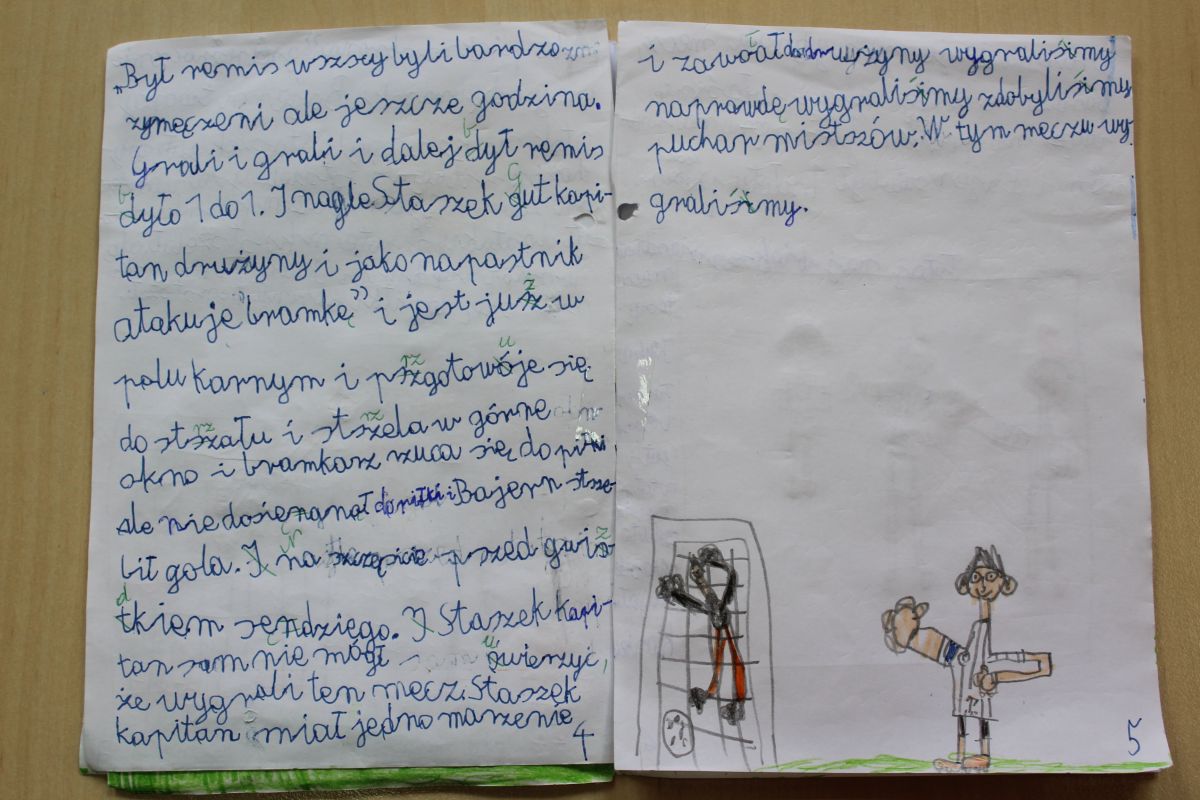 „Był remis wszscy byli bardzo
zymęczeni ale jeszcze godzina.
Grali i grali i dalej dył remis
dyło 1 do 1. I nagle Staszek gut kapi-
tan drużyny i jako napastnik
atakuje "bramkę" i jest jusz w
polu karnym i pszgotowóje się
do stszału i stszela w górne
okno i bramkarz rzuca się do piłki
ale nie dosięngnął do piłki i Bajern stsze-
lił gola. I na szczęście pszed gwiz
tkiem sęndziego. I Staszek kapi-
tan sam nie mógł ówierzyć,
że wygrali ten mecz. Staszek
kapitan miał jedno marzenie
4
i zawołał do drużyny wygraliśimy
naprawdę wygraliśimy zdobyliśimy
puchar mistszów. W tym meczu wy
graliśimy.
5